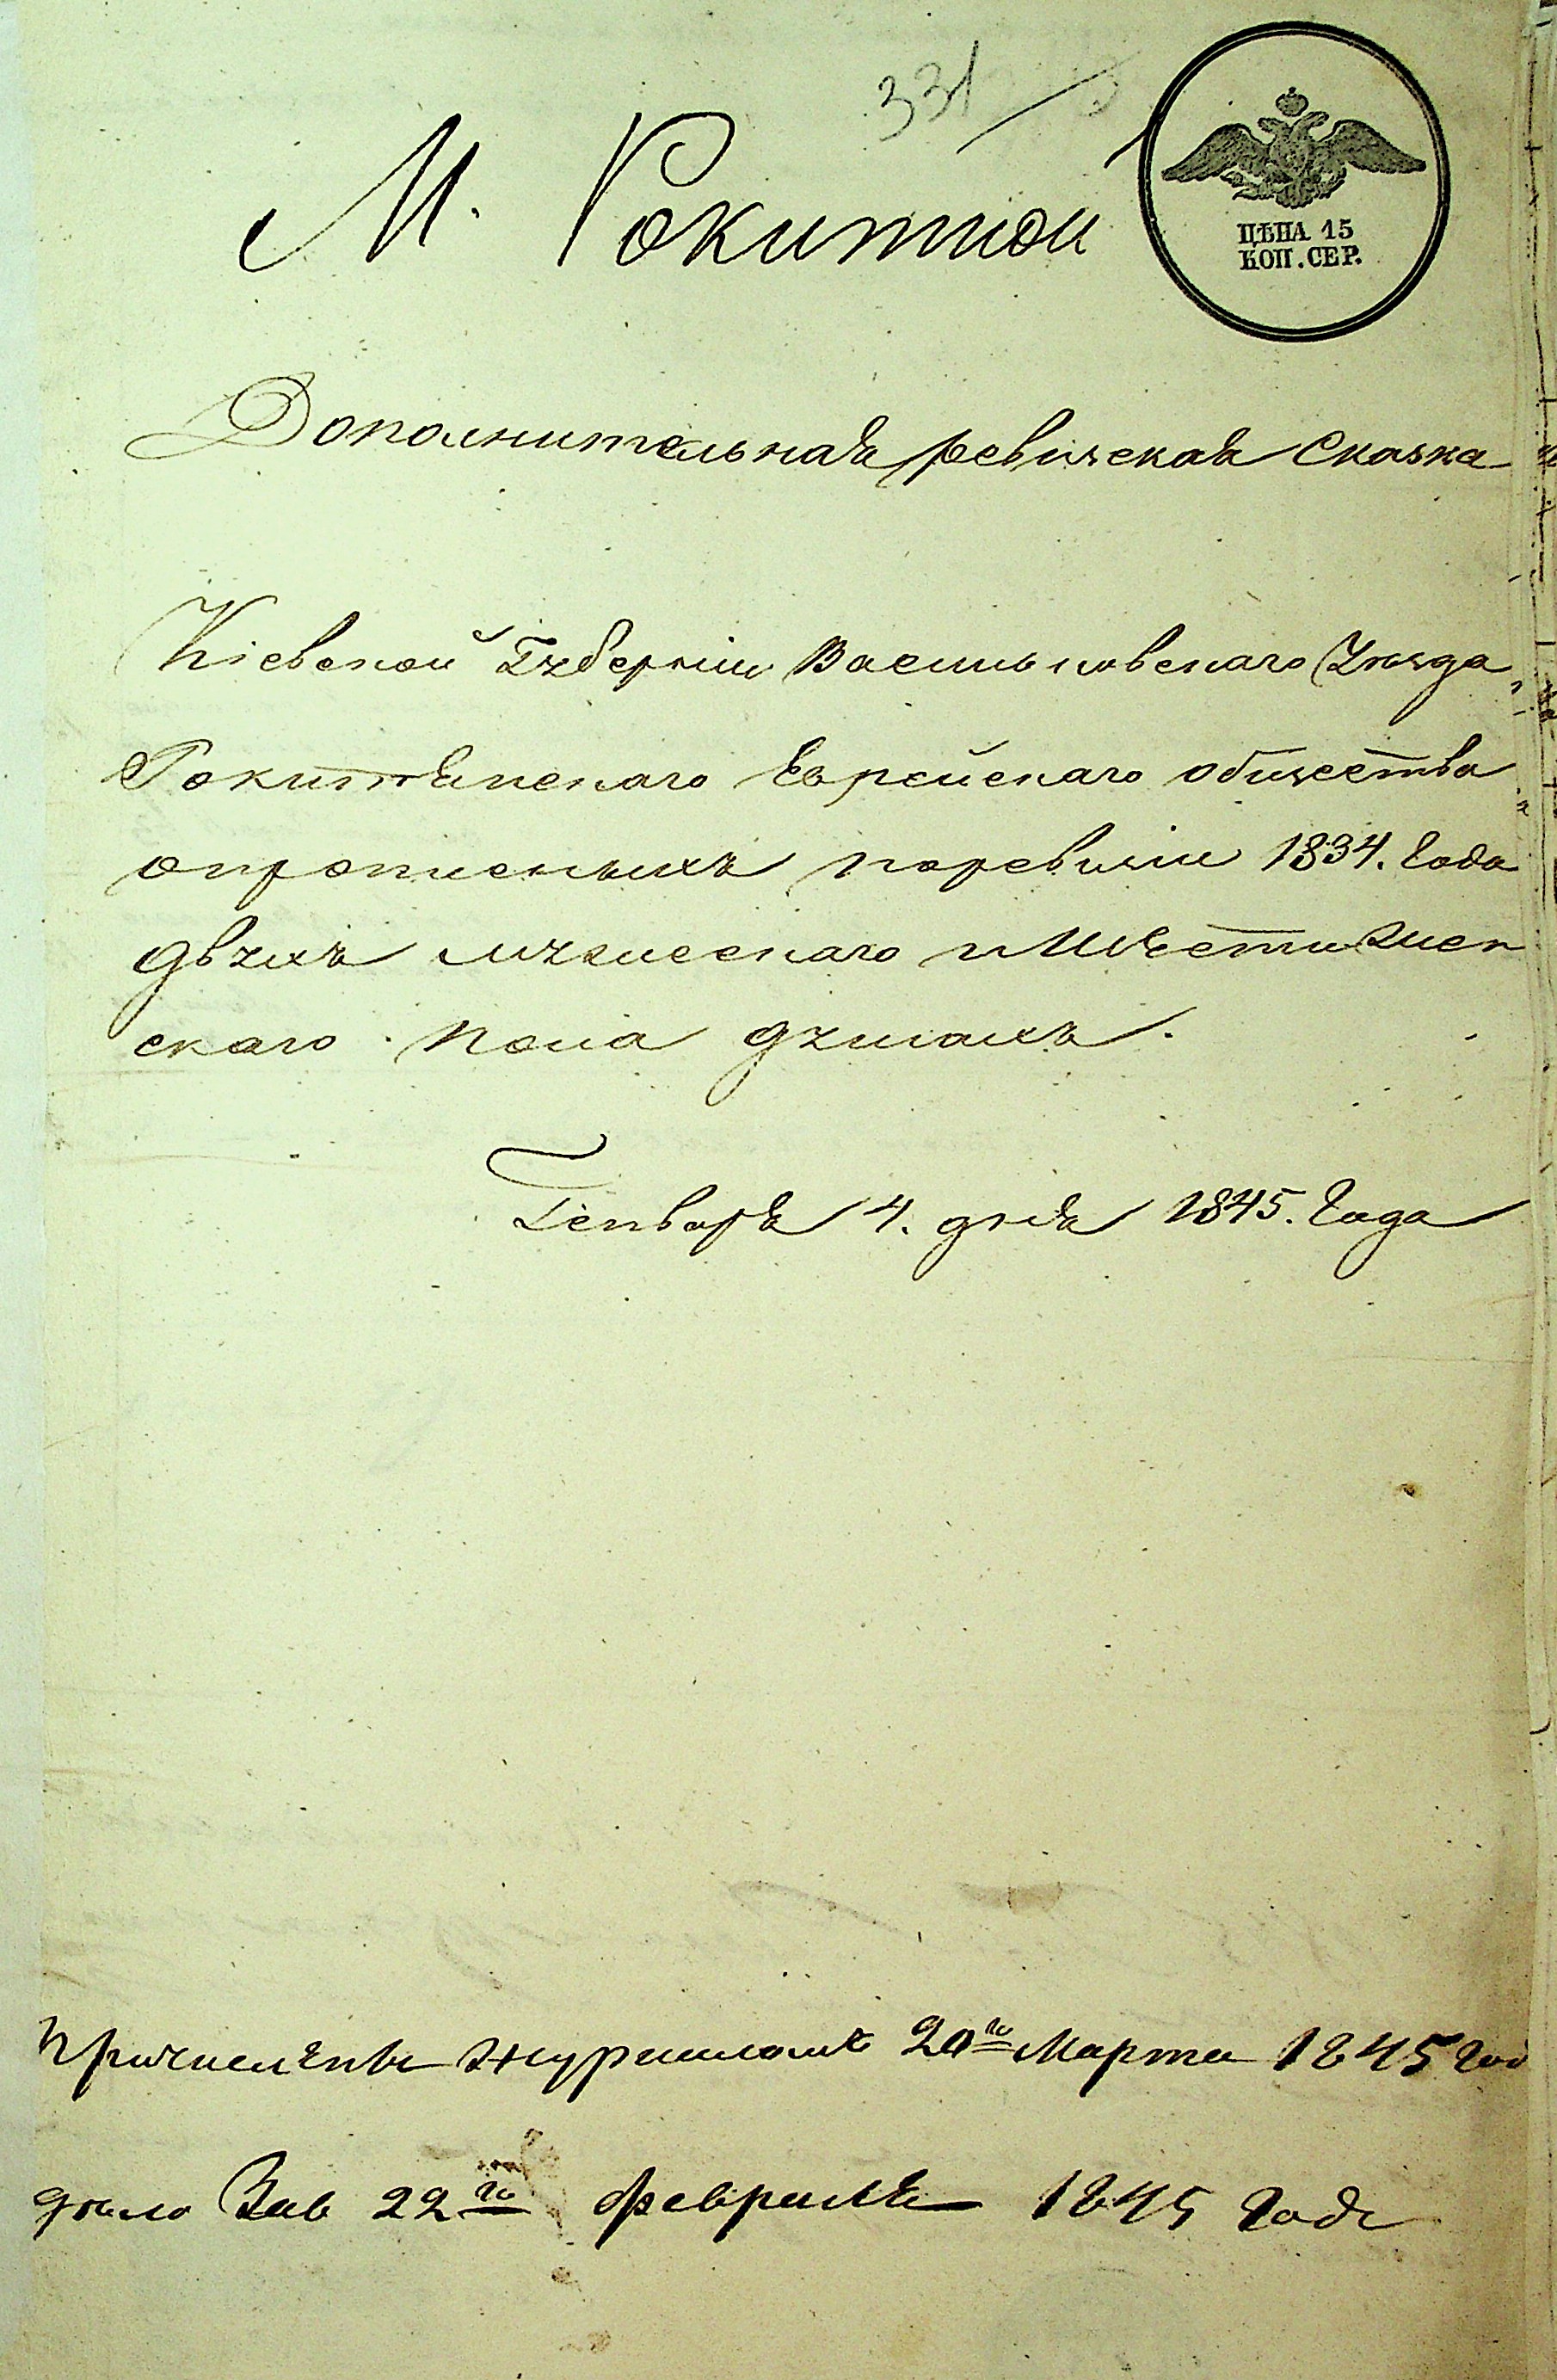 331
М. Рокитной
ЦѢНА 15
КОП. СЕР.
Дополнительная ревизская Сказка
Кіевской Губерніи Васильковскаго Уѣзда
Рокитянскаго Еврейскаго общества
опрописныхъ поревизіи 1834. Года
двухъ мужескаго и Шести Жен
скаго пола душахъ.
Генваря 4. дня 1845. Года
Причислены журналомъ 20го Марта 1845 Год
дѣло Зав 22го февраля 1845 Года